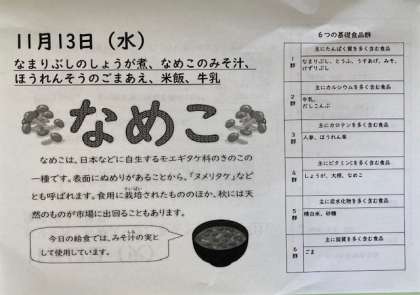 11月13日（水）
なまりぶしのしょうが煮、なめこのみそ汁、
ほうれんそうのごまあえ、米飯、牛乳
なめこ
なめこは、日本などに自生するモエギタケ科のきのこの
一種です。表面にぬめりがあることから、「ヌメリタケ」など
とも呼ばれます。食用に栽培されたもののほか、秋には天
然のものが市場に出回ることもあります。
今日の給食では、みそ汁の実と
して使用しています。
6つの基礎食品群
1群
主にたんぱく質を多く含む食品
なまりぶし、とうふ、うすあげ、みそ、
けずりぶし
2群
主にカルシウムを多く含む食品
牛乳、
だしこんぶ
3群
主にカロテンを多く含む食品
人参、ほうれん草
4群
主にビタミンCを多く含む食品
しょうが、大根、なめこ
5群
主に炭水化物を多く含む食品
精白米、砂糖
6群
主に脂質を多く含む食品
ごま